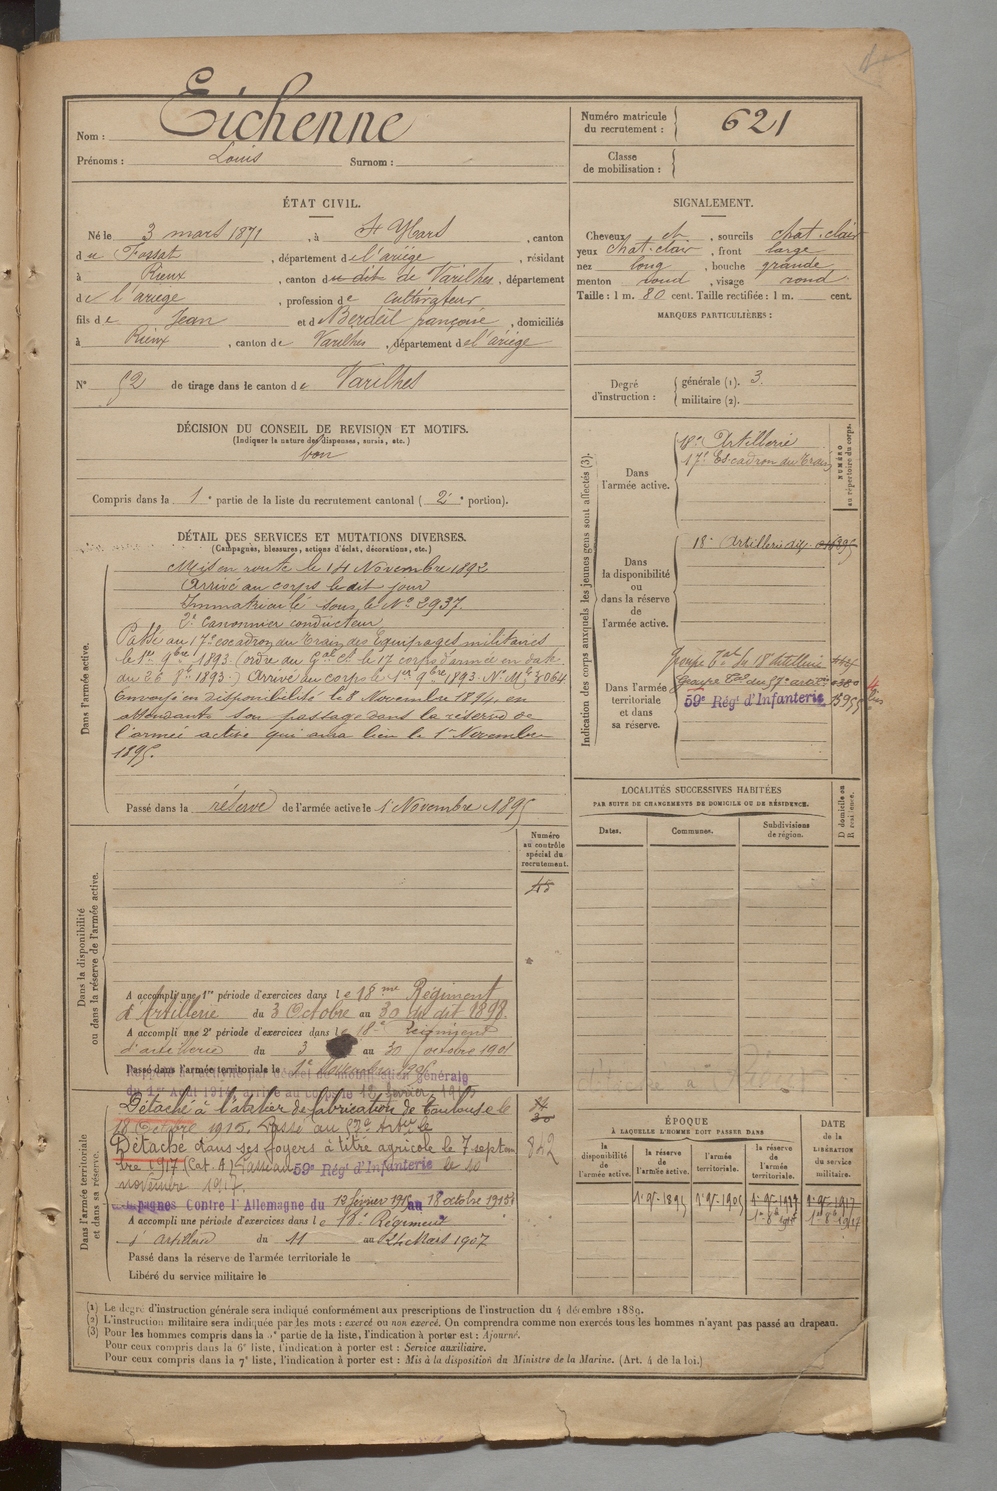 Nom : Eichenne
Prénoms : Louis Surnom :
Numéro matricule
du recrutement : 621
Classe
de mobilisation :
ÉTAT CIVIL.
Né le 3 mars 1871, à St Ybars, canton
du Fossat, département de l'ariège, résidant
à Rieux, canton du dit de Varilhes, département
de l'ariege, profession de cultivateur
fils de Jean et de Berdeil françoise, domiciliés
à Rieux, canton de Varilhes, département de l'ariège
N° 52 de tirage dans le canton de Varilhes
SIGNALEMENT.
Cheveux et, sourcils chat. clair
yeux chat. clair, front large
nez long, bouche grande
menton rond, visage rond
Taille : 1 m. 80 cent. Taille rectifiée : 1 m. cent.
MARQUES PARTICULIÈRES :
Degré
d'instruction :
générale (1). 3.
militaire (2).
DÉCISION DU CONSEIL DE REVISION ET MOTIFS.
(Indiquer la nature des dispenses, sursis, etc.)
bon
Compris dans la 1e partie de la liste du recrutement cantonal (2e portion).
DÉTAIL DES SERVICES ET MUTATIONS DIVERSES.
(Campagnes, blessures, actions d'éclat, décorations, etc.)
Dans l'armée active.
Mis en route le 14 Novembre 1892
Arrivé au corps le dit jour
Immatriculé sous le N° 2937
2e Canonnier conducteur
Passé au 17e escadron du Train des Equipages militaires
le 1er 9bre 1893 (ordre du Gal Ct le 17 corps d'armée en date
du 26 8bre 1893.) Arrivé au corps le 1er 9bre 1893. N° Mle 3064
Envoyé en disponibilité le 8 Novembre 1894, en
attendant son passage dans la réserve de
l'armée active qui aura lieu le 1er Novembre
1895.
Passé dans la réserve de l'armée active le 1 Novembre 1895
Indication des corps auxquels les jeunes gens sont affectés (3).
NUMÉRO
au répertoire du corps.
Dans
l'armée active.
18e Artillerie
17e Escadron du Train
Dans
la disponibilité
ou
dans la réserve
de
l'armée active.
18e Artillerie
Dans l'armée
territoriale
et dans
sa réserve.
Groupe Tal du 18e Artillerie
Groupe Tal du 57e artie
59e Régt d'Infanterie
LOCALITÉS SUCCESSIVES HABITÉES
PAR SUITE DE CHANGEMENTS DE DOMICILE OU DE RÉSIDENCE.
D domicile ou
R résidence.
Dates. Communes. Subdivisions
de région.
Numéro
au contrôle
spécial du
recrutement.
45
Dans la disponibilité
ou dans la réserve de l'armée active.
A accompli une 1re période d'exercices dans le 18me Régiment
d'Artillerie du 3 Octobre au 30 du dit 1898.
A accompli une 2e période d'exercices dans le 18e régiment
d'artillerie du 3 au 30 octobre 1901
Passé dans l'armée territoriale le 1er Novembre 1905
Rappelé à l'activité par décret de mobilisation générale
du 1er Août 1914, arrivé au corps le 12 février 1915
Dans l'armée territoriale
et dans sa réserve.
Détaché à l'atelier de fabrication de Toulouse le
18 Octobre 1915. Passé au 57e Artie le
Détaché dans ses foyers à titre agricole le 7 septem
bre 1917 (Cat. A) Passé au 59e Régt d'Infanterie le 10
novembre 1917.
Campagnes Contre l'Allemagne du 12 février 1915 au 18 octobre 1915
842
A accompli une période d'exercices dans le 18e Régiment
d'artillerie du 11 au 24 Mars 1907
Passé dans la réserve de l'armée territoriale le
Libéré du service militaire le
ÉPOQUE
À LAQUELLE L'HOMME DOIT PASSER DANS
DATE
de la
LIBÉRATION
du service
militaire.
la
disponibilité
de
l'armée active.
la réserve
de
l'armée active.
l'armée
territoriale.
la réserve
de
l'armée
territoriale.
1er 9bre 1895 1er 9bre 1905 1er 9bre 1917
(1) Le degré d'instruction générale sera indiqué conformément aux prescriptions de l'instruction du 4 décembre 1889.
(2) L'instruction militaire sera indiquée par les mots : exercé ou non exercé. On comprendra comme non exercés tous les hommes n'ayant pas passé au drapeau.
(3) Pour les hommes compris dans la 5e partie de la liste, l'indication à porter est : Ajourné.
Pour ceux compris dans la 6e liste, l'indication à porter est : Service auxiliaire.
Pour ceux compris dans la 7e liste, l'indication à porter est : Mis à la disposition du Ministre de la Marine. (Art. 4 de la loi.)